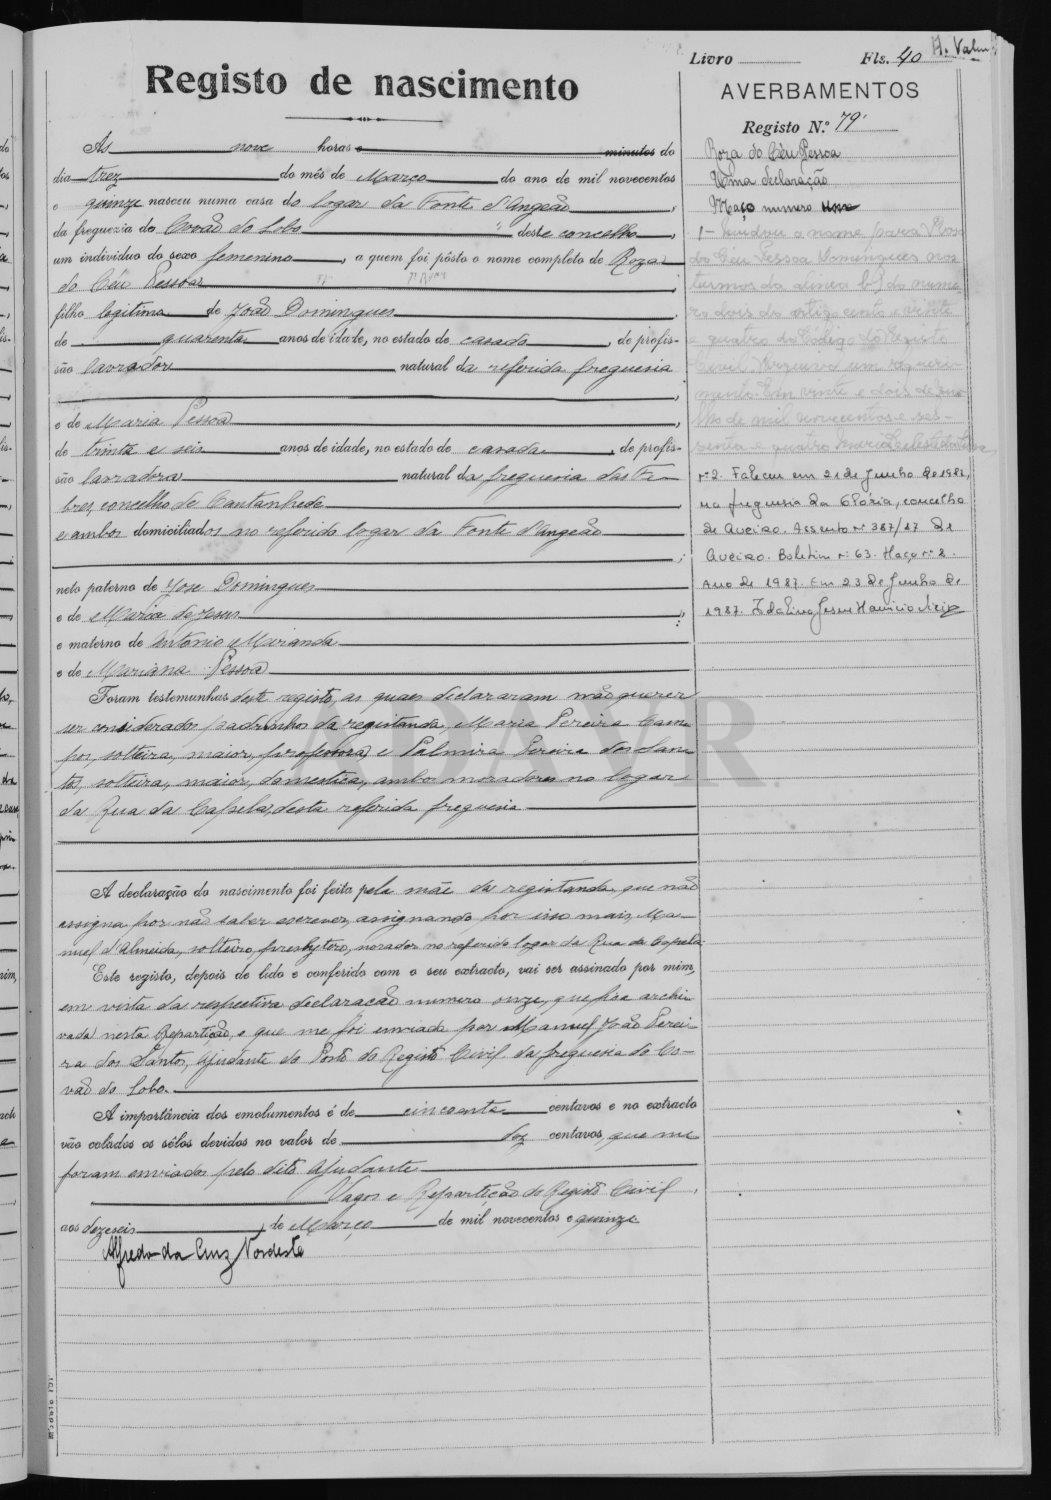 Livro Fls. 40
Registo de nascimento
As nove horas e minutos do
dia trez do mês de Março do ano de mil novecentos
e quinze nasceu numa casa do logar da Fonte d'Angeão,
da freguezia do Covão do Lobo deste concelho,
um individuo do sexo femenino, a quem foi pôsto o nome completo de Roza
do Céu Pessoa
filha legitima de João Domingues
de quarenta anos de idade, no estado de casado, de profis-
são lavrador natural da referida freguesia
e de Maria Pessoa,
de trinta e seis anos de idade, no estado de casada, de profis-
são lavradora natural da freguesia das Fe-
bres, concelho de Cantanhede
e ambos domiciliados no referido logar da Fonte d'Angeão
neto paterno de José Domingues
e de Maria de Jesus
e materno de Antonio Miranda
e de Mariana Pessoa
Foram testemunhas deste registo, as quaes declararam não querer
ser considerados padrinhos da registanda, Maria Pereira Cam-
pos, solteira, maior, professora, e Palmira Pereira dos San-
tos, solteira, maior, domestica, ambos moradores no logar
da Rua da Capela, desta referida freguesia
A declaração do nascimento foi feita pela mãe da registanda, que não
assigna por não saber escrever, assignando por isso mais, Ma-
nuel d'Almeida, solteiro, presbytero, morador no referido logar da Rua da Capela.
Este registo, depois de lido e conferido com o seu extracto, vai ser assinado por mim,
em vista da respectiva declaração numero onze, que fica archi-
vada nesta Repartição, e que me foi enviada por Manuel João Perei-
ra dos Santos, Ajudante do Posto do Registo Civil da freguesia do Co-
vão do Lobo.
A importância dos emolumentos é de cincoenta centavos e no extracto
vão colados os sêlos devidos no valor de dez centavos, que me
foram enviados pelo dito Ajudante
Vagos e Repartição do Registo Civil,
aos dezeseis de Março de mil novecentos e quinze
Alfredo da Cruz Nordeste
AVERBAMENTOS
Registo N.º 79
Roza do Céu Pessoa
Uma declaração
Maço numero
1 - Mudou o nome para Rosa
do Céu Pessoa Domingues nos
termos da alinea b) do nume-
ro dois do artigo cento e vinte
e quatro do Código do Registo
Civil. Arquivo um requeri-
mento. Em vinte e dois de
de mil novecentos e ses-
senta e quatro.
nº 2. Faleceu em 21 de Junho de 1987,
na freguesia da Glória, concelho
de Aveiro. Assento nº 387/87 de
Aveiro. Boletim nº 63. Maço nº 2.
Ano de 1987. Em 23 de Junho de
1987.
AVR